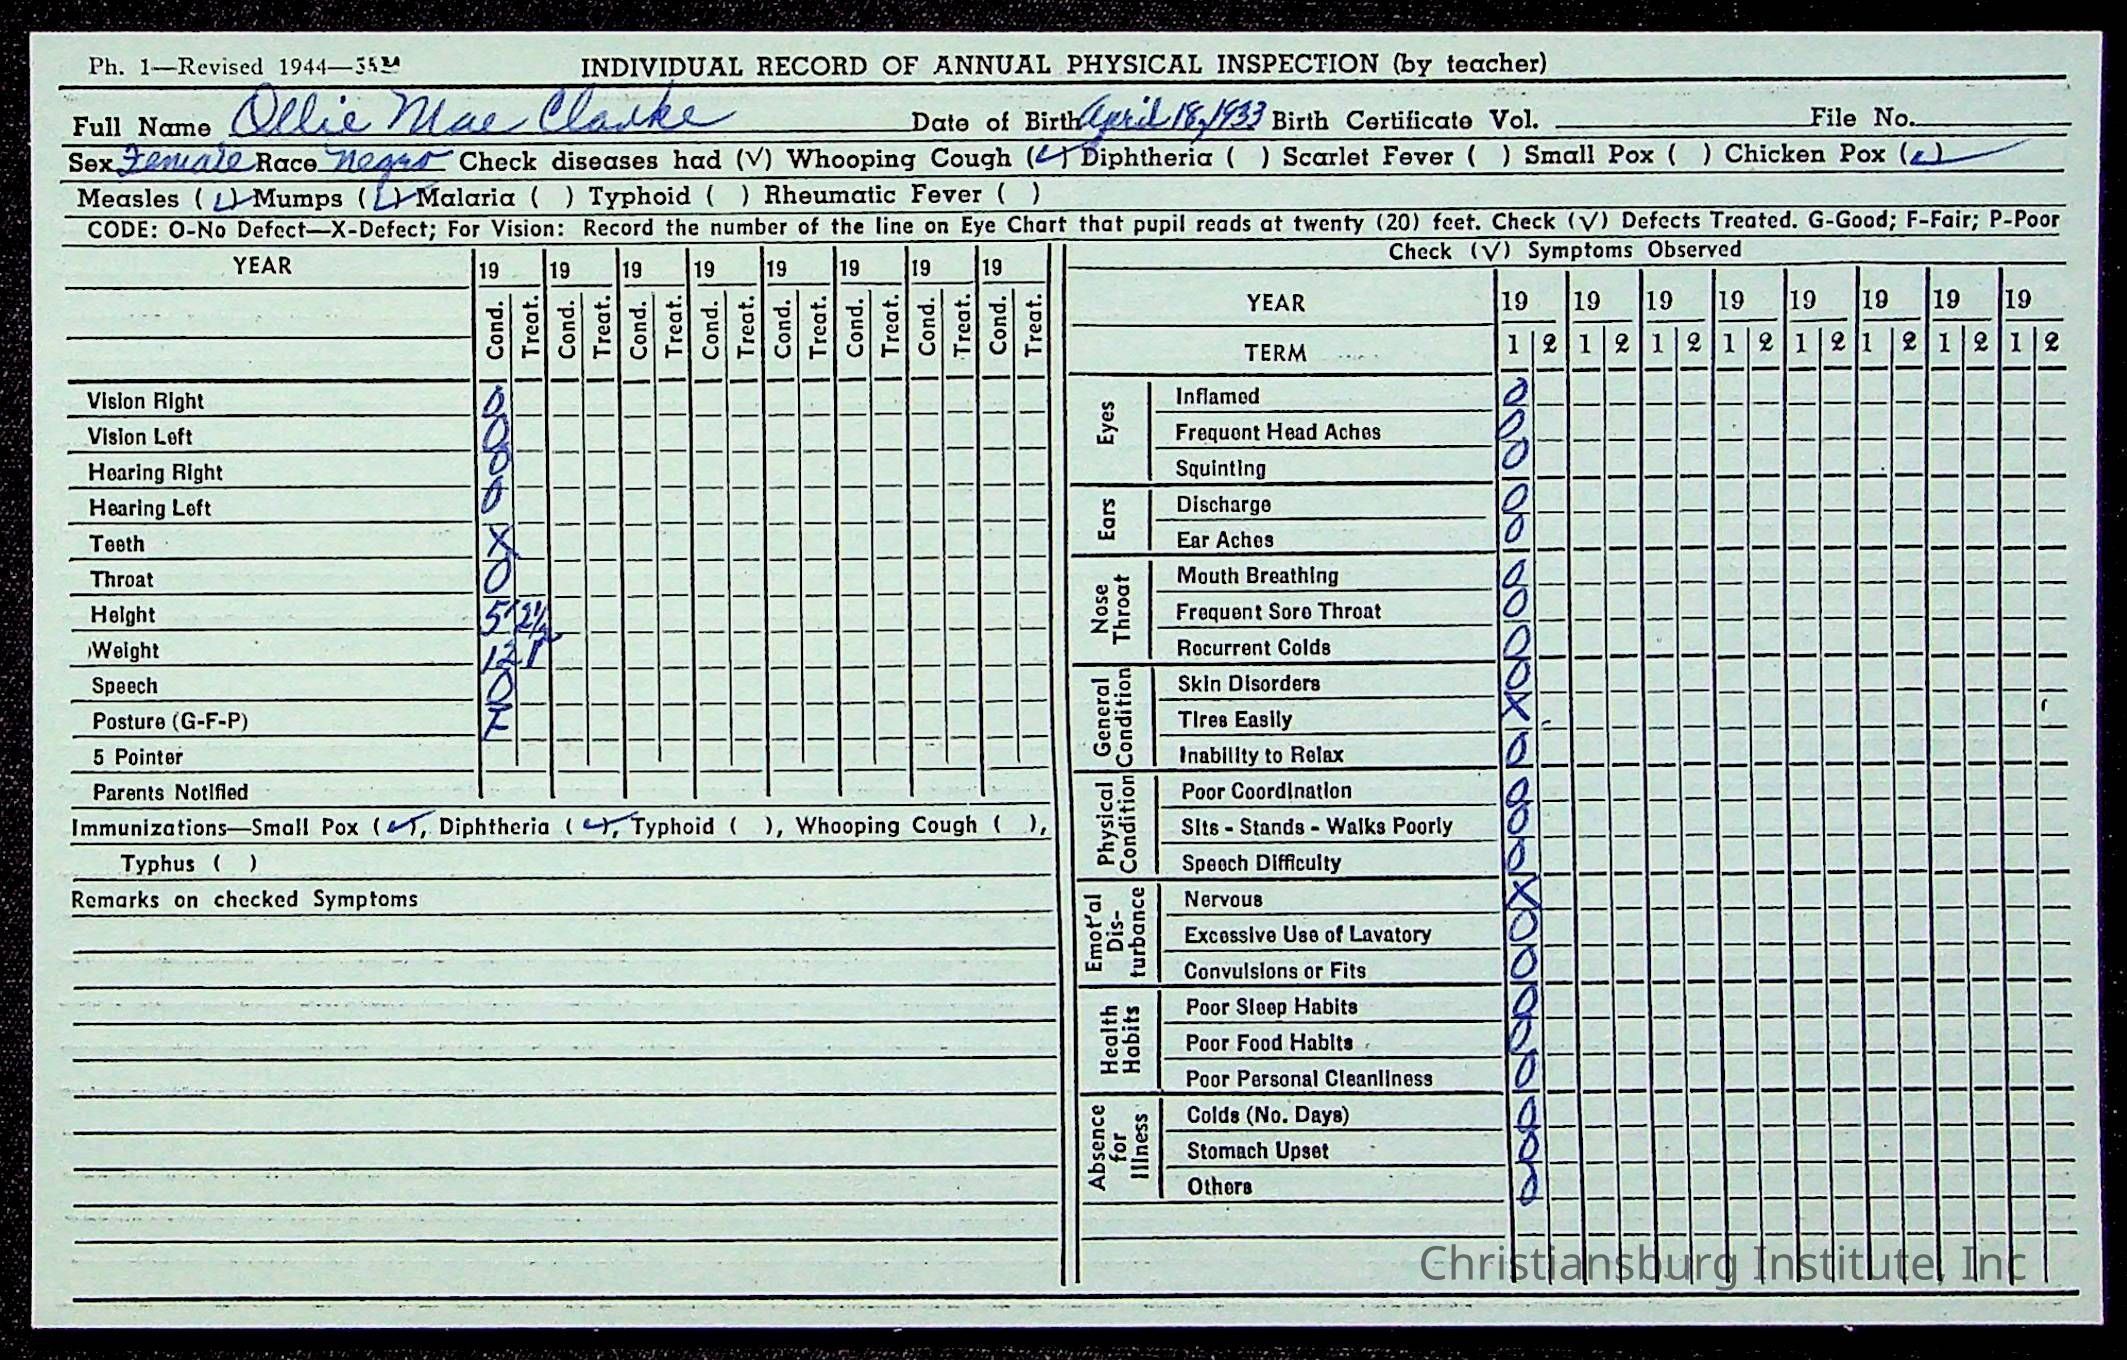 Ph. 1—Revised 1944—35M
INDIVIDUAL RECORD OF ANNUAL PHYSICAL INSPECTION (by teacher)
Full Name Ollie Mae Clarke Date of Birth April 18, 1933 Birth Certificate Vol. File No.
Sex Female Race Negro Check diseases had (√) Whooping Cough (✓) Diphtheria ( ) Scarlet Fever ( ) Small Pox ( ) Chicken Pox (✓)
Measles (✓) Mumps (✓) Malaria ( ) Typhoid ( ) Rheumatic Fever ( )
CODE: O-No Defect—X-Defect; For Vision: Record the number of the line on Eye Chart that pupil reads at twenty (20) feet. Check (√) Defects Treated. G-Good; F-Fair; P-Poor
YEAR 19 19 19 19 19 19 19 19
Cond. Treat. Cond. Treat. Cond. Treat. Cond. Treat. Cond. Treat. Cond. Treat. Cond. Treat. Cond. Treat.
Vision Right 0
Vision Left 0
Hearing Right 0
Hearing Left 0
Teeth X
Throat 0
Height 5' 2½
Weight 121
Speech 0
Posture (G-F-P) F
5 Pointer
Parents Notified
Immunizations—Small Pox (✓), Diphtheria (✓), Typhoid ( ), Whooping Cough ( ),
Typhus ( )
Remarks on checked Symptoms
Check (√) Symptoms Observed
YEAR 19 19 19 19 19 19 19 19
TERM 1 2 1 2 1 2 1 2 1 2 1 2 1 2 1 2
Eyes
Inflamed 0
Frequent Head Aches 0
Squinting 0
Ears
Discharge 0
Ear Aches 0
Nose Throat
Mouth Breathing 0
Frequent Sore Throat 0
Recurrent Colds 0
General Condition
Skin Disorders 0
Tires Easily X
Inability to Relax 0
Physical Condition
Poor Coordination 0
Sits - Stands - Walks Poorly 0
Speech Difficulty 0
Emot'al Dis-turbance
Nervous X
Excessive Use of Lavatory 0
Convulsions or Fits 0
Health Habits
Poor Sleep Habits 0
Poor Food Habits 0
Poor Personal Cleanliness 0
Absence for Illness
Colds (No. Days) 0
Stomach Upset 0
Others 0
Christiansburg Institute, Inc